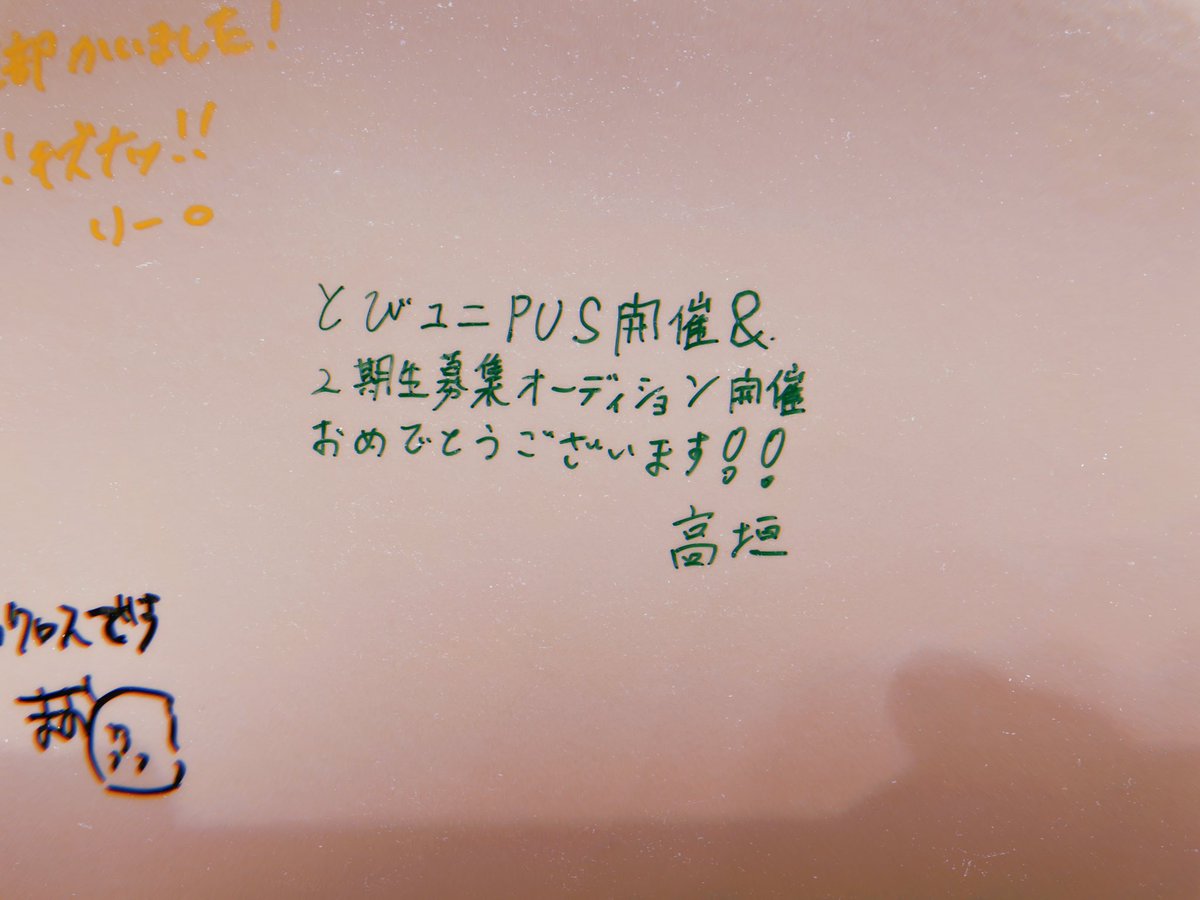 部かいました！
！キズナッ!!
りー。
とびユニPUS開催&
2期生募集オーディション開催
おめでとうございます!!
高垣
クロスです